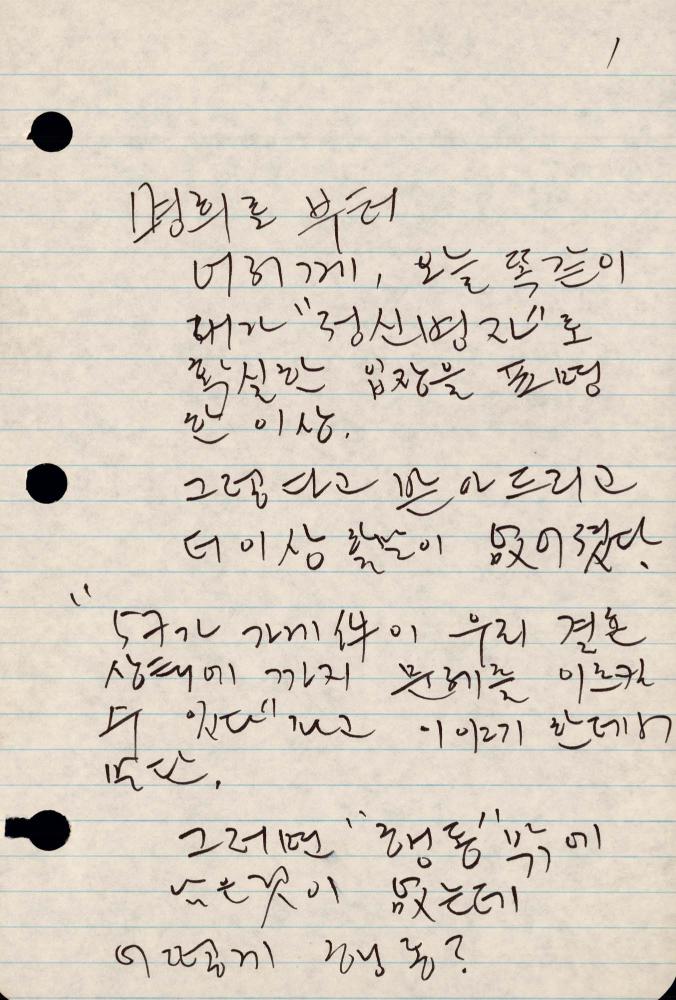 1
명희로 부터
너허게, 오늘 똑같이
내가 "정신병자"로
확실한 입장을 표명
한 이상.
그렇다고 받아드리고
더 이상 할 이 없어졌다.
"57가 가게 件이 우리 결혼
상태에 까지 문제를 이르킬
수 있다"라고 이야기 한데서
말
그러면 "행동"밖에
남은것이 없는데
어떻게 행동?